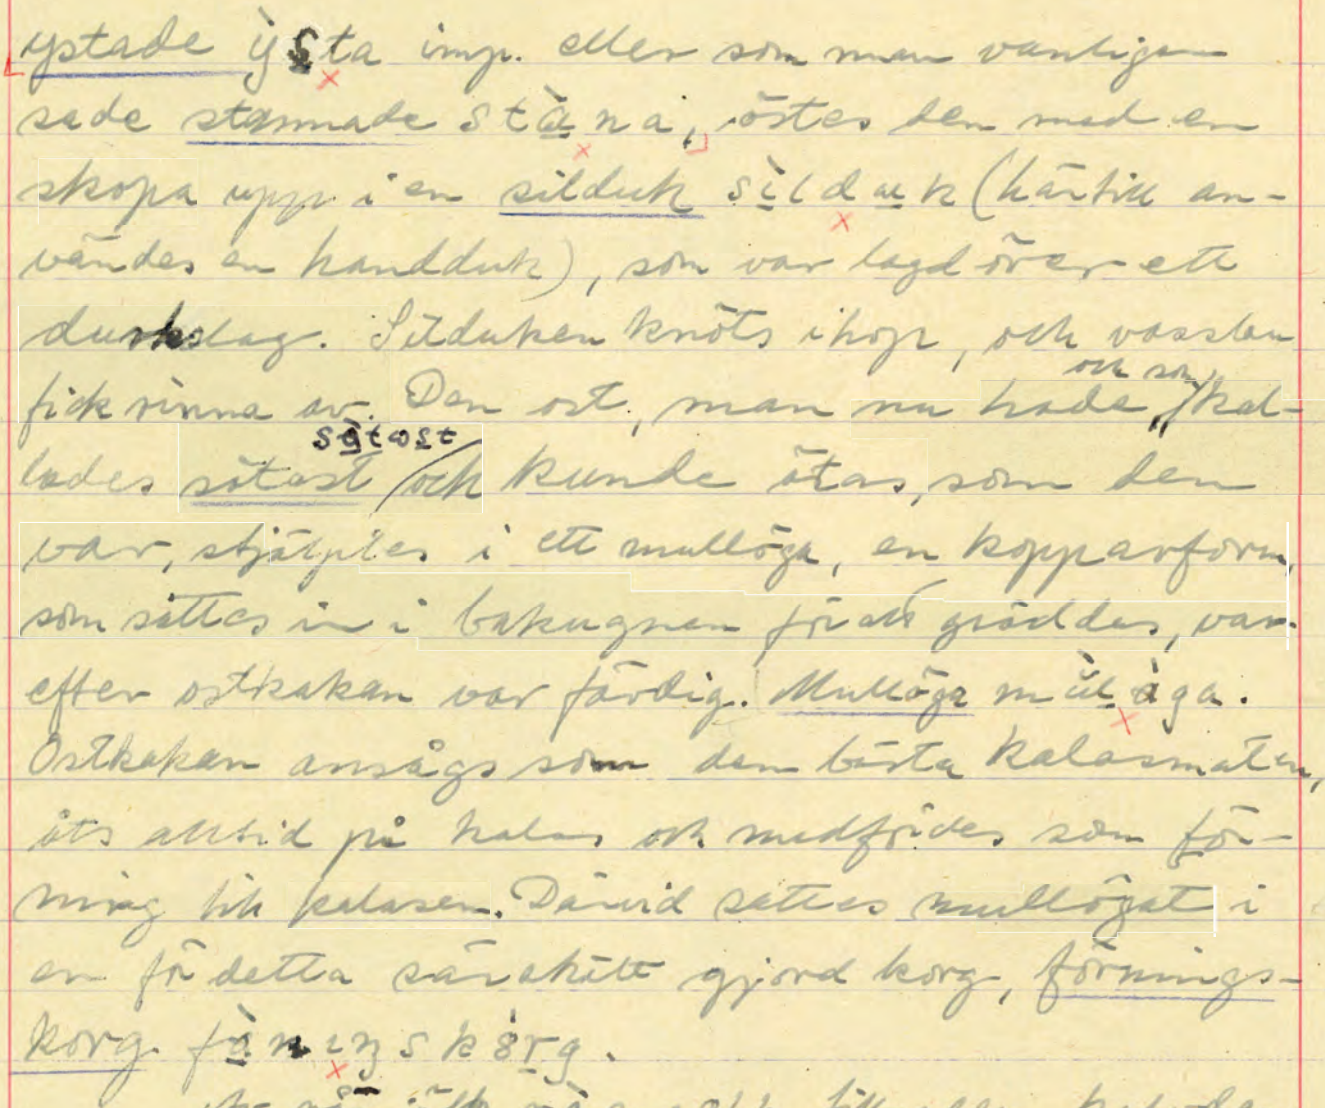 ystade ẏsta imp. eller som man vanligen
sade stannade stàna, östes den med en
skopa upp i en silduk sìlduk (härtill an-
vändes en handduk), som var lagd över ett
durkslag. Silduken knöts ihop, och vasslan
fick rinna av. Den ost, man nu hade, och som kal-
lades sötost sỳtost och kunde ätas, som den
var, stjälptes i ett mullöga, en kopparform,
som sattes in i bakugnen för att gräddas, var-
efter ostkakan var färdig. Mullöga mùlàga.
Ostkakan ansågs som den bästa kalasmaten,
åts alltid på kalas och medfördes som för-
ning till kalasen. Därvid sattes mullögat i
en för detta särskilt gjord korg, förnings-
korg